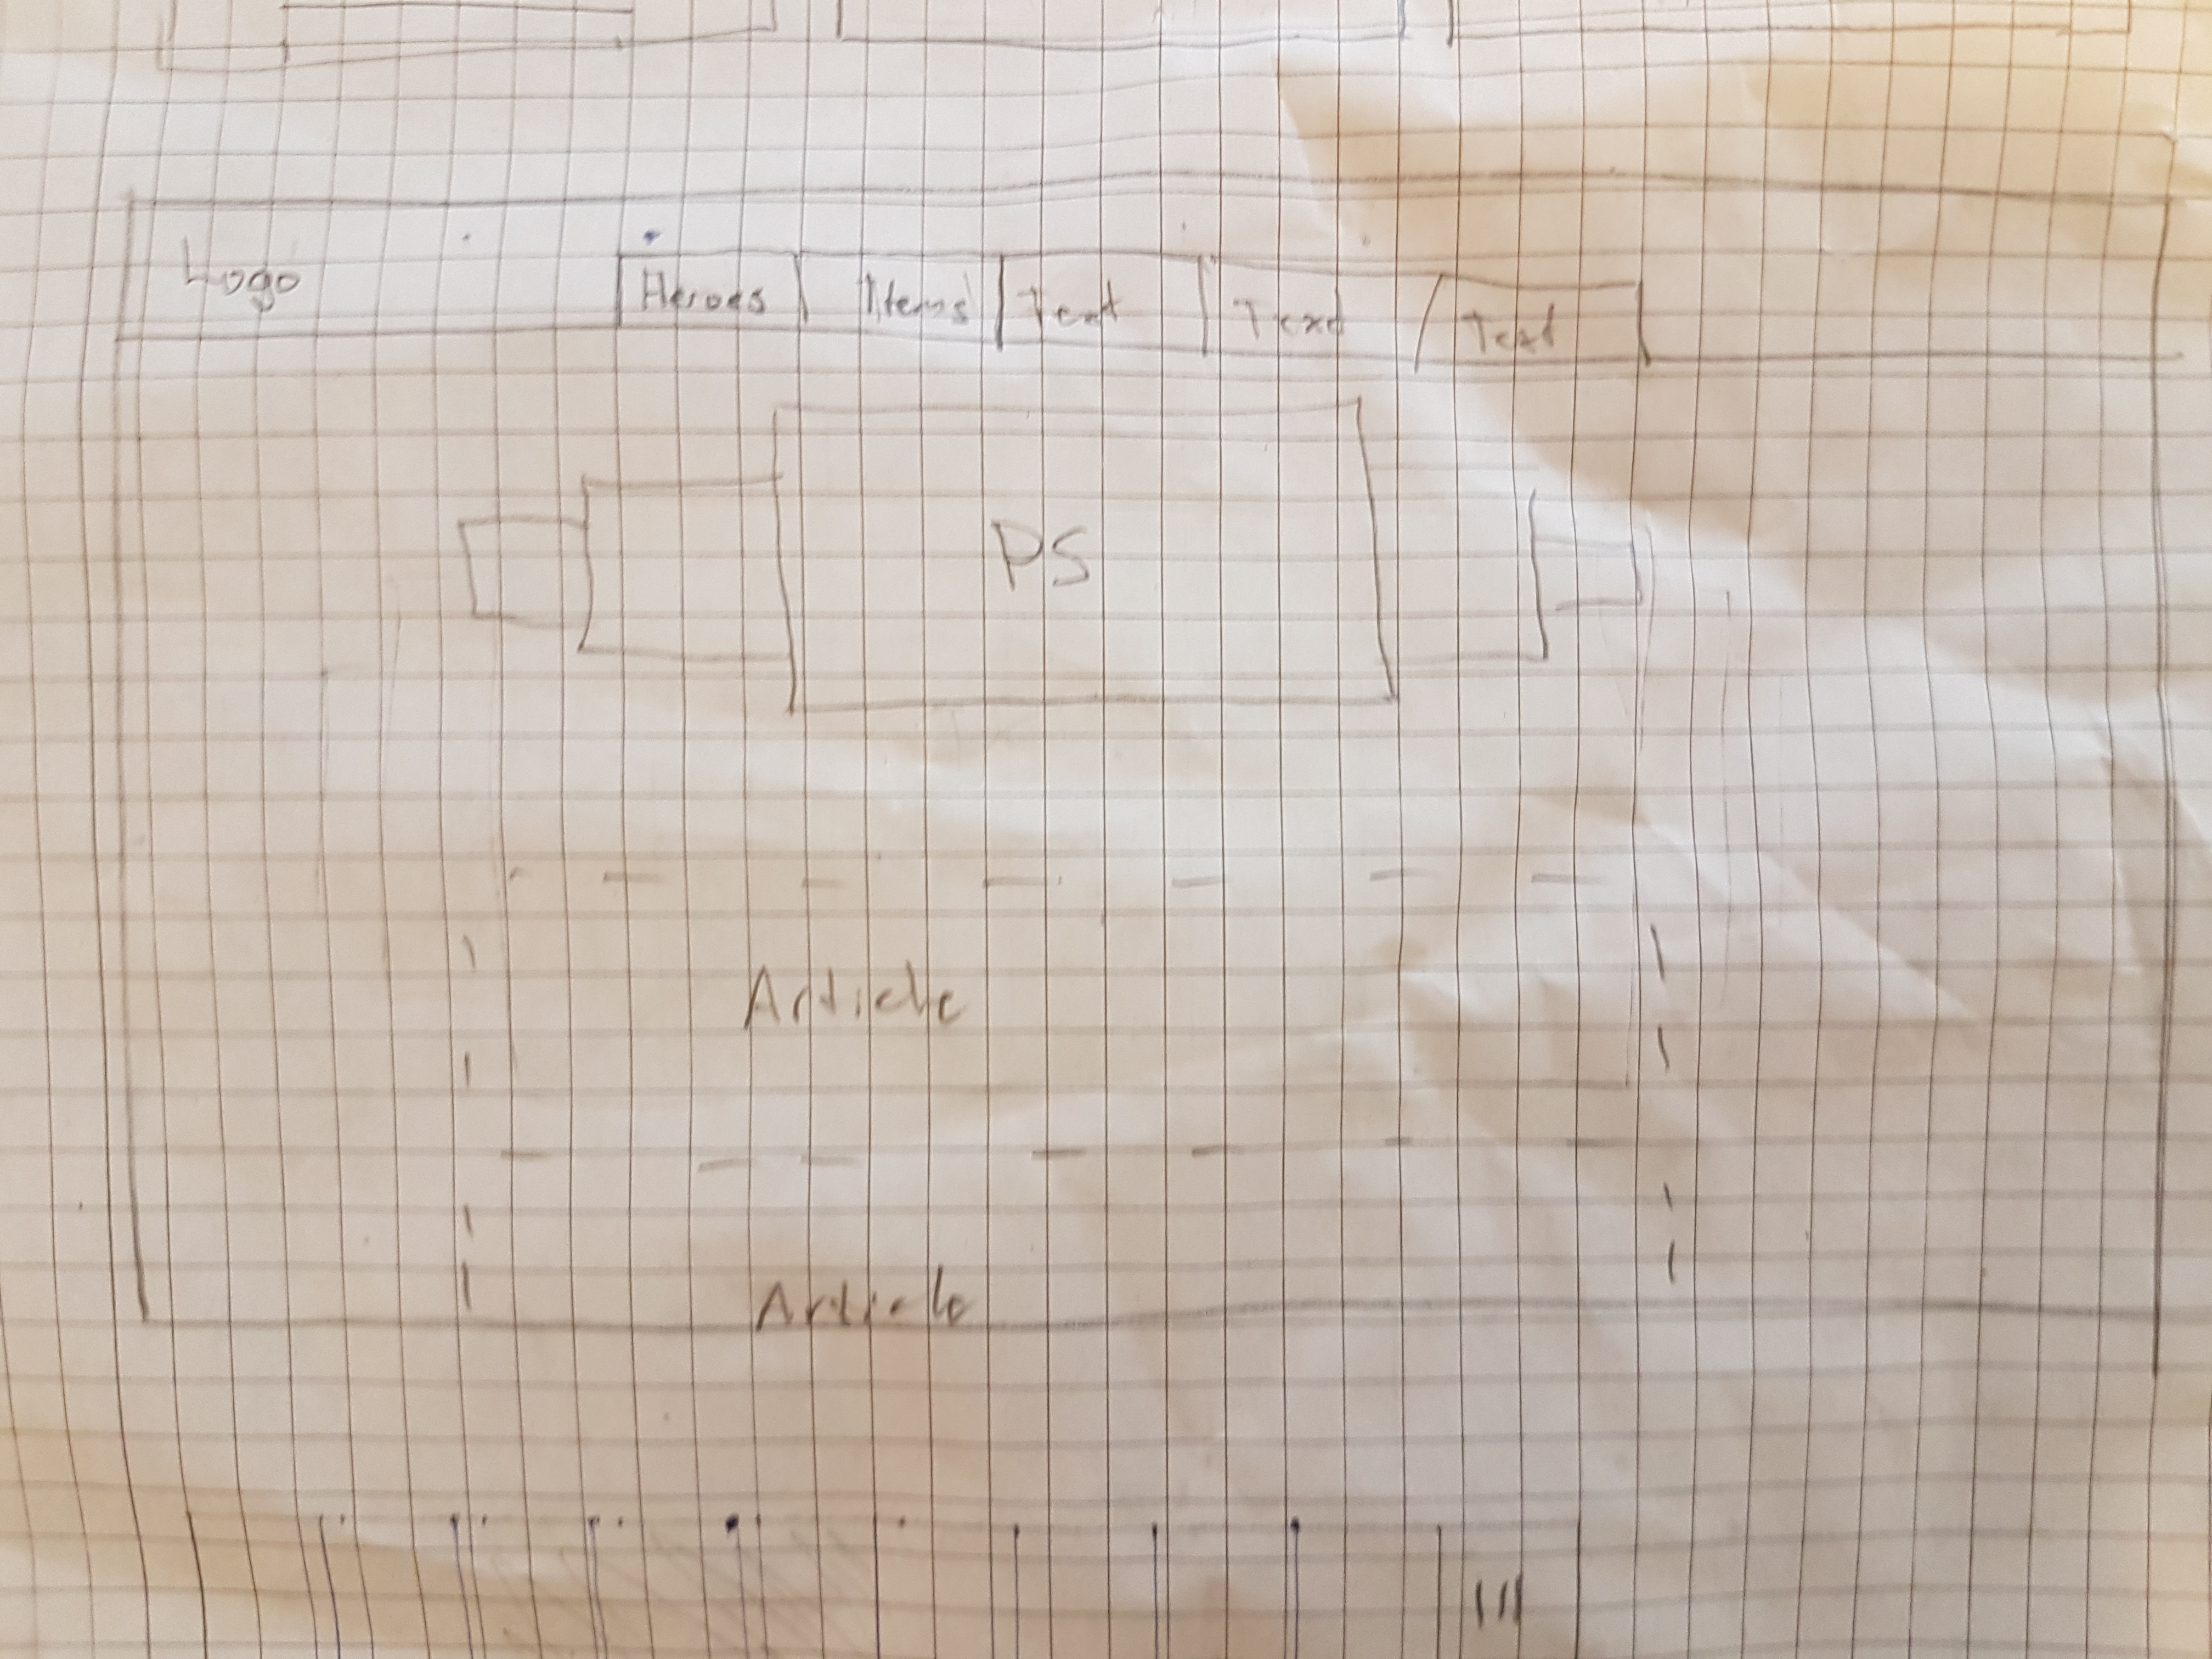 Logo Heroes Items Text Text Text
PS
Article
Article